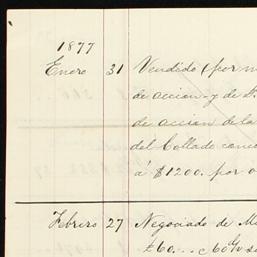 1877
Enero 31 Vendido (por m
de accion y de D.
de accion de la
del Collado conc
á $1200. por o
Febrero 27 Negociado de Mi
£60... c 60 d/